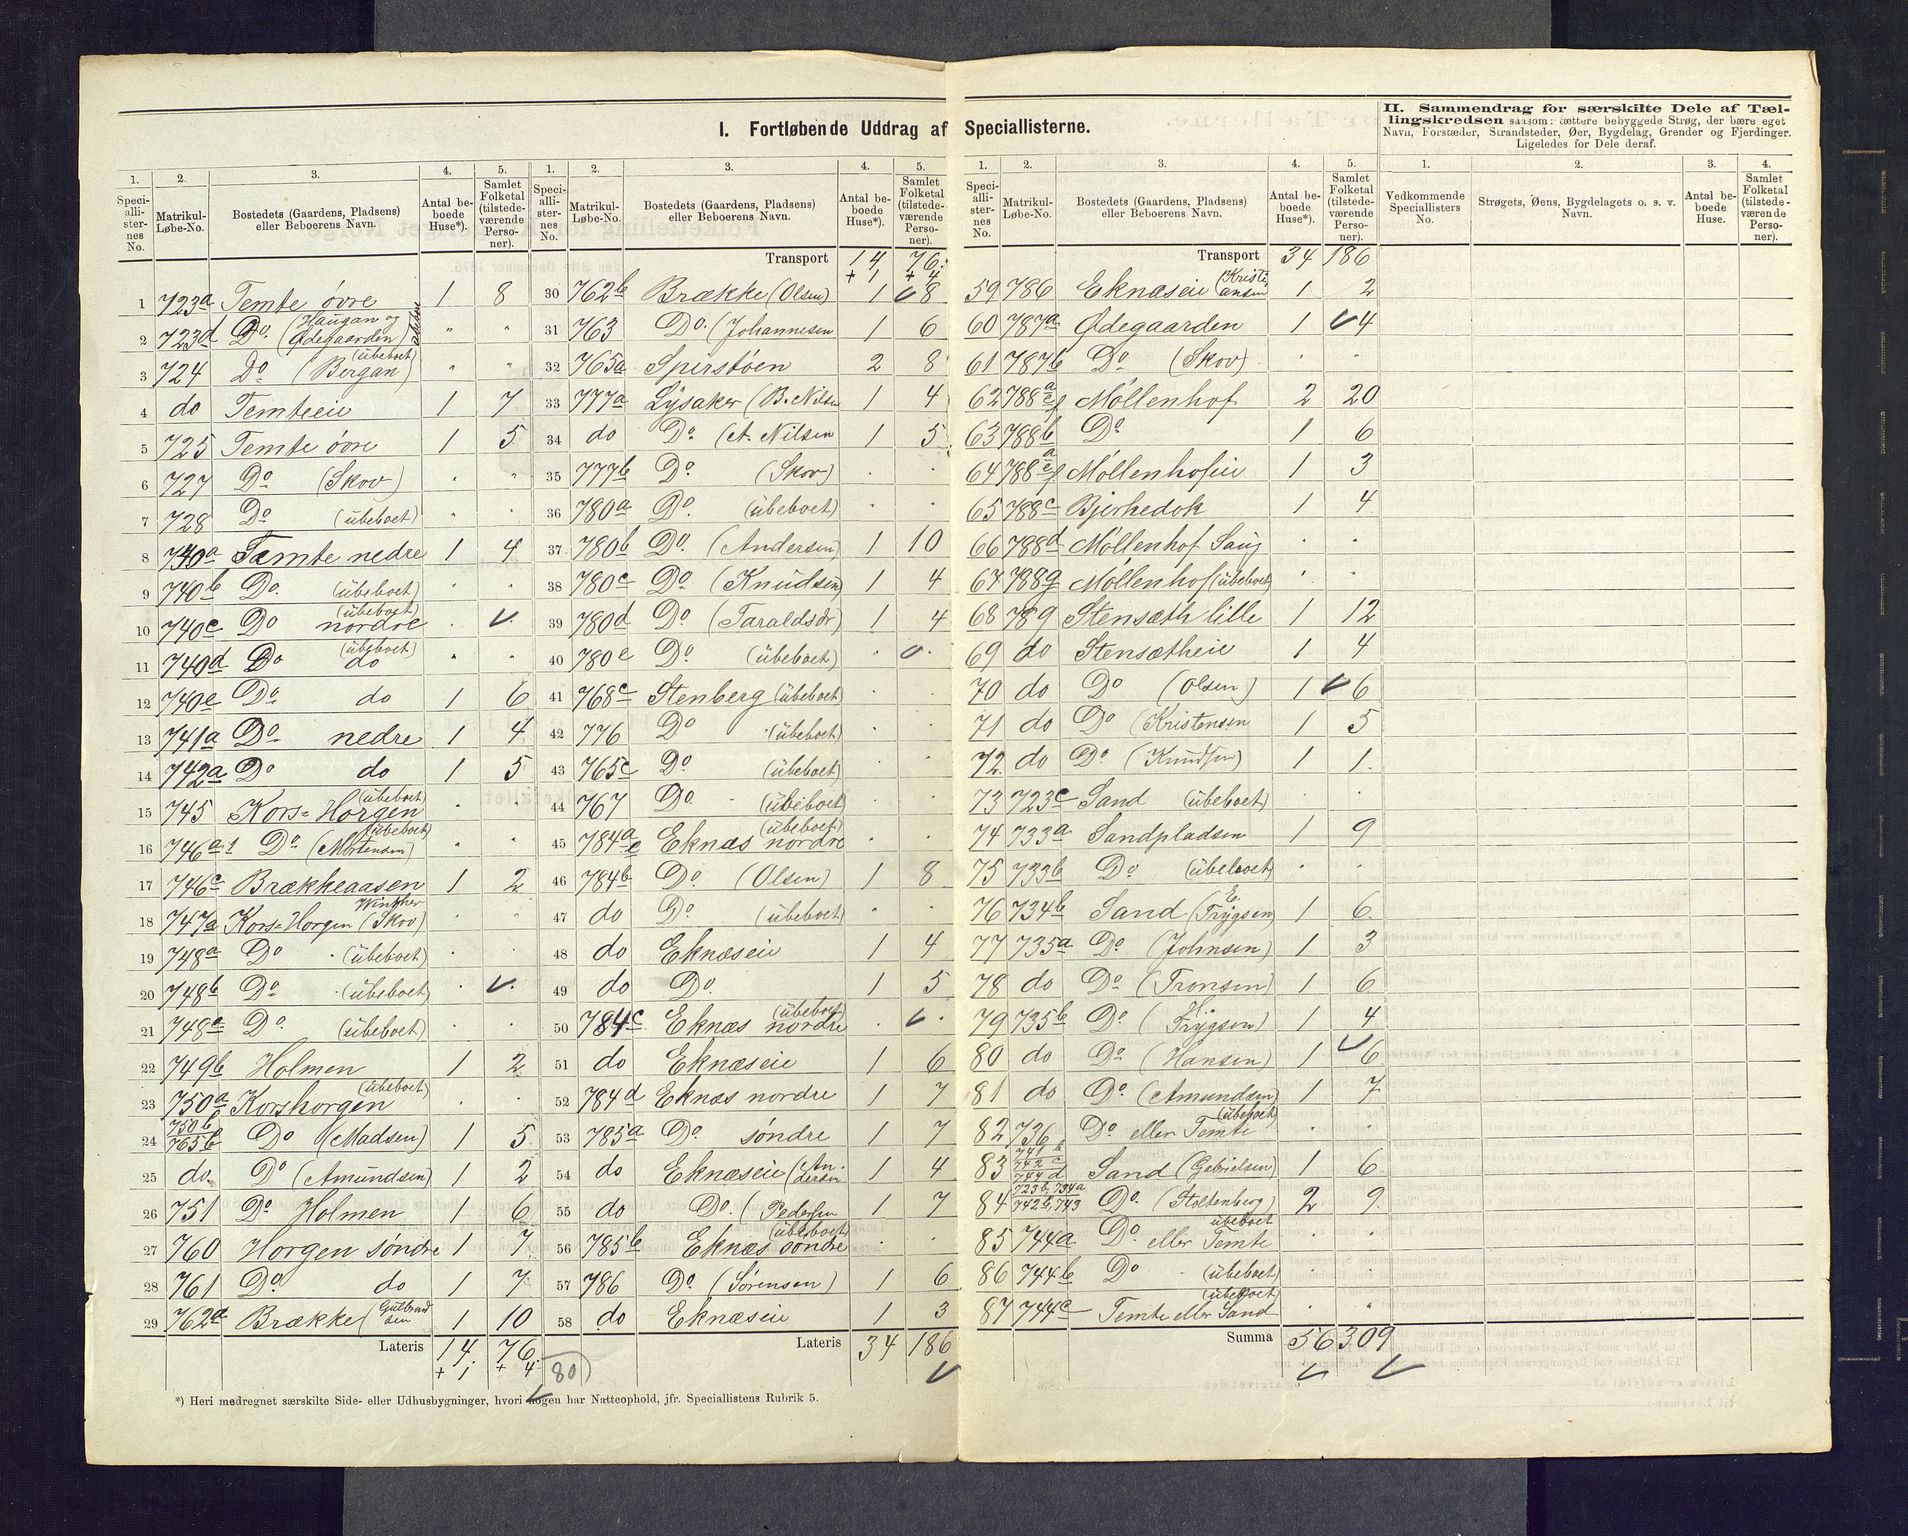 I. Fortløbende Uddrag af Speciallisterne.
II. Sammendrag for særskilte Dele af Tæl-
lingskredsen saasom: tættere bebyggede Strøg, der bære eget
Navn, Forstæder, Strandsteder, Øer, Bygdelag, Grender og Fjerdinger.
Ligeledes for Dele deraf.
1. 2. 3. 4. 5.
Speciallisternes No. Matrikul-Løbe-No. Bostedets (Gaardens, Pladsens) eller Beboerens Navn. Antal beboede Huse*). Samlet Folketal (tilstedeværende Personer).
1 723a Temte øvre 1 8
2 723d Do (Haugan og Ødegaarden) " "
3 724 Do (Bergan) (übeboet) " "
4 do Temteeie 1 7
5 725 Temte øvre 1 5
6 727 Do (Skov) . "
7 728 Do (übeboet) . .
8 740a Temte nedre 1 4
9 740b Do. (übeboet) . .
10 740c Do nordre (übeboet) . .
11 740d Do do (übeboet) . .
12 740e Do do 1 6
13 741a Do nedre 1 4
14 742a Do do 1 5
15 745 Kors=Horgen (übeboet) . .
16 746a1 Do (Mortensen) (übeboet) " "
17 746c Brækkeaasen 1 2
18 747a Kors=Horgen Winther (Skov) . .
19 748a Do (übeboet) . .
20 748b Do (übeboet) . .
21 748c Do. (übeboet) . .
22 749b Holmen 1 2
23 750a Korshorgen (übeboet) . .
24 750b 765b Do (Madsen) 1 5
25 do. Do (Amundsen) 1 2
26 751 Do Holmen 1 6
27 760 Horgen søndre 1 7
28 761 Do. do 1 7
29 762a Brække (Gulbrandsen 1 10
Lateris 14 76
+ 1 + 4
80
*) Heri medregnet særskilte Side- eller Udhusbygninger, hvori nogen har Natteophold, jfr. Speciallistens Rubrik 5.
1. 2. 3. 4. 5.
Speciallisternes No. Matrikul-Løbe-No. Bostedets (Gaardens, Pladsens) eller Beboerens Navn. Antal beboede Huse*). Samlet Folketal (tilstedeværende Personer).
Transport 14 76
+ 1 + 4
30 762b Brække (Olsen) 1 8
31 763 Do. (Johannesen 1 6
32 765a Spirstøen 2 8
33 777a Lysaker (B. Nilsen 1 4
34 do Do (A. Nilsen 1 5
35 777b Do (Skov) . .
36 780a Do. (übeboet) . .
37 780b Do. (Andersen) 1 10
38 780c Do (Knudsen) 1 4
39 780d Do (Taraldsdr) 1 4
40 780e Do (übeboet) . .
41 768c Stenberg (übeboet) . .
42 776 Do (übeboet) . .
43 765c Do (übeboet) . .
44 767 Do. (übeboet) . .
45 784a e Eknæs nordre (übeboet) . .
46 784b Do. (Olsen) 1 8
47 do Do. (übeboet) . .
48 do Eknæseie 1 4
49 do Do. 1 5
50 784c Eknæs nordre (übeboet) . .
51 do Eknæseie 1 6
52 784d Eknæs nordre 1 7
53 785a Do søndre 1 7
54 do Eknæseie (Andersen 1 4
55 do Do. (Pedersen 1 7
56 785b Eknæs søndre (übeboet) . .
57 786 Do (Sørensen) 1 6
58 do Eknæseie 1 3
Lateris 34 186
1. 2. 3. 4. 5.
Speciallisternes No. Matrikul-Løbe-No. Bostedets (Gaardens, Pladsens) eller Beboerens Navn. Antal beboede Huse*). Samlet Folketal (tilstedeværende Personer).
Transport 34 186
59 786 Eknæseie (Kristiansen 1 2
60 787a Ødegaarden 1 4
61 787b Do (Skov) . .
62 788a e f Møllenhof 2 20
63 788b Do 1 6
64 788a e f Møllenhofeie 1 3
65 788c Bjerkedok 1 4
66 788d Møllenhof Saug . .
67 788g Møllenhof (übeboet) . .
68 789 Stensæth lille 1 12
69 do Stensætheie 1 4
70 do Do (Olsen) 1 6
71 do Do (Kristensen 1 5
72 do Do (Knudsen) 1 1
73 723c Sand (übeboet) . .
74 733a Sandpladsen 1 9
75 733b Do (übeboet) . .
76 734b Sand (E. Trygsen) 1 6
77 735a Do. (Johnsen) 1 3
78 do Do (Tronsen) 1 6
79 735b Do (H. Trygsen) 1 4
80 do Do (Hansen) 1 6
81 do Do. (Amundsen) 1 7
82 736 Do eller Temte (übeboet) . .
83 741b 742c 744d Sand (Gabrielsen) 1 6
84 723b, 734a 742b, 743 Do. (Stoltenberg) 2 9
85 744a Do. eller Temte übeboet . .
86 744b Do (übeboet) . .
87 744c Temte eller Sand (übeboet) . "
Summa 56 309
1. 2. 3. 4.
Vedkommende Speciallisters No. Strøgets, Øens, Bygdelagets o. s. v. Navn. Antal beboede Huse. Samlet Folketal (tilstedeværende Personer).